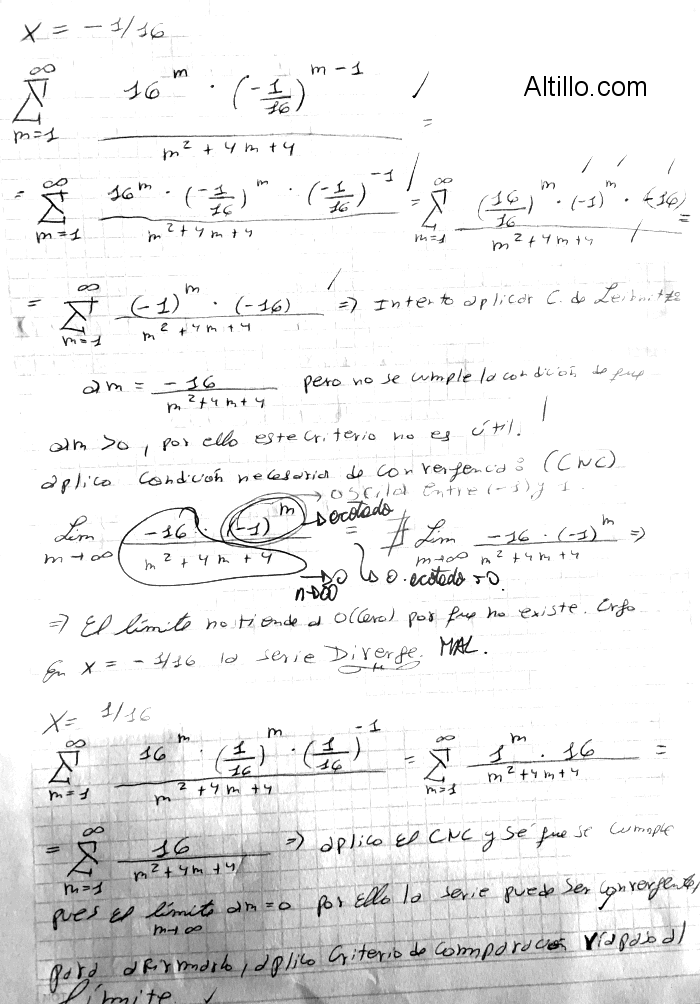 x = -1/16
Altillo.com
∞ ∑ m=1 16^m · (-1/16)^(m-1) / m² + 4m + 4 =
= ∞ ∑ m=1 16^m · (-1/16)^m · (-1/16)^-1 / m² + 4m + 4 = ∞ ∑ m=1 (16/16)^m · (-1)^m · (-16) / m² + 4m + 4 =
= ∞ ∑ m=1 (-1)^m · (-16) / m² + 4m + 4 => Intento aplicar C. de Leibnitz
am = -16 / m² + 4m + 4 pero no se cumple la condición de que
am > 0, por ello este criterio no es útil.
aplico condición necesaria de convergencia: (CNC)
→ oscila entre (-1) y 1.
Lim m→∞ -16 · (-1)^m / m² + 4m + 4 → acotado = ∄ Lim m→∞ -16 · (-1)^m / m² + 4m + 4 =>
n→∞ → 0 ↳ 0 · acotado → 0.
=> El límite no tiende a 0 (cero) porque no existe. Ergo
En x = -1/16 la serie Diverge. MAL.
X = 1/16
∞ ∑ m=1 16^m · (1/16)^m · (1/16)^-1 / m² + 4m + 4 = ∞ ∑ m=1 1^m · 16 / m² + 4m + 4 =
= ∞ ∑ m=1 16 / m² + 4m + 4 => aplico El CNC y sé que se cumple
pues El límite m→∞ am = 0 por Ello la serie puede ser convergente,
para afirmarlo, aplico Criterio de comparación vía paso al
límite ✓